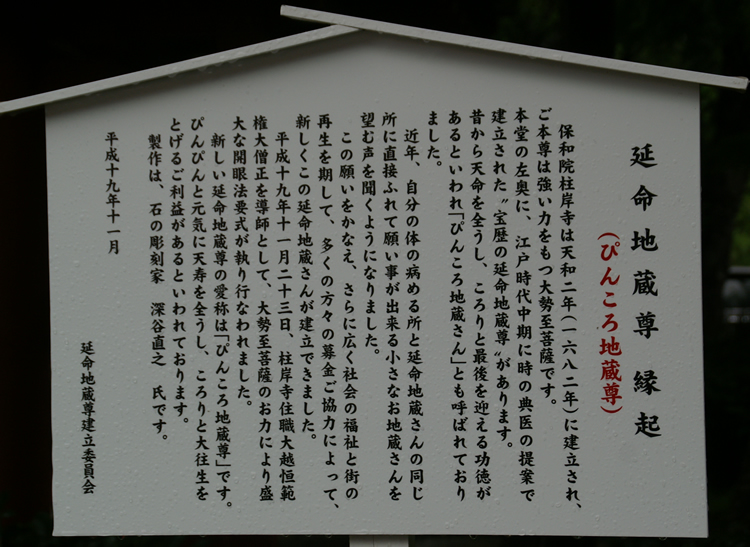 延命地蔵尊 縁起
(ぴんころ地蔵尊)
保和院柱岸寺は天和二年(一六八二年)に建立され、
ご本尊は強い力をもつ大勢至菩薩です。
本堂の左奥に、江戸時代中期に時の典医の提案で
建立された〝宝歴の延命地蔵尊〟があります。
昔から天命を全うし、ころりと最後を迎える功徳が
あるといわれ「ぴんころ地蔵さん」とも呼ばれており
ました。
近年、自分の体の病める所と延命地蔵さんの同じ
所に直接ふれて願い事が出来る小さなお地蔵さんを
望む声を聞くようになりました。
この願いをかなえ、さらに広く社会の福祉と街の
再生を期して、多くの方々の募金ご協力によって、
新しくこの延命地蔵さんが建立できました。
平成十九年十一月二十三日、柱岸寺住職大越恒範
権大僧正を導師として、大勢至菩薩のお力により盛
大な開眼法要式が執り行なわれました。
新しい延命地蔵尊の愛称は「ぴんころ地蔵尊」です。
ぴんぴんと元気に天寿を全うし、ころりと大往生を
とげるご利益があるといわれております。
製作は、石の彫刻家 深谷直之 氏です。
平成十九年十一月
延命地蔵尊建立委員会